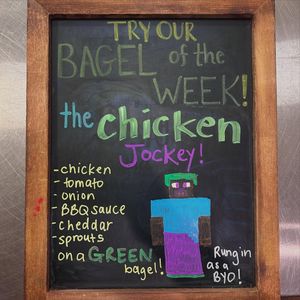 TRY OUR
BAGEL of the
WEEK!
the chicken
Jockey!
- chicken
- tomato
- onion
- BBQ sauce
- cheddar
- sprouts
on a GREEN
bagel!
Rung in
as a
BYO!